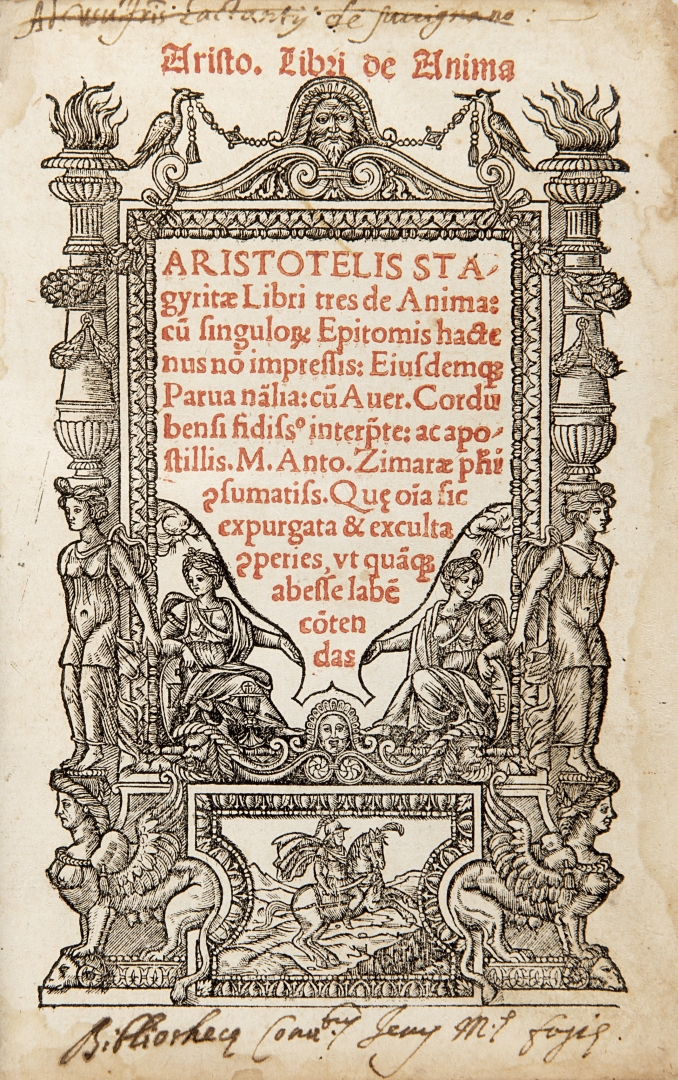 Aristo. Libri de Anima
ARISTOTELIS STA⸗
gyritæ Libri tres de Anima:
cũ singuloꝝ Epitomis hacte
nus nõ impressis: Eiusdemqꝫ
Parua nãlia: cũ Auer. Cordu
bensi fidissº interp̃te: ac apo⸗
stillis. M. Anto. Zimaræ phi
ꝯsumatiss. Quę oĩa sic
expurgata & exculta
ꝯperies, vt quãqꝫ
abesse labẽ
cõten
das
Bibliothecę